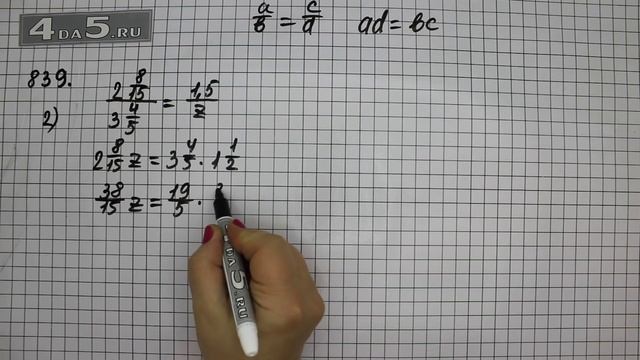 4DA5.RU
a/b = c/d   ad = bc
839.
2) 2 8/15 / 3 4/5 = 1,5/z
2 8/15 z = 3 4/5 · 1 1/2
38/15 z = 19/5 ·
4DA5.RU